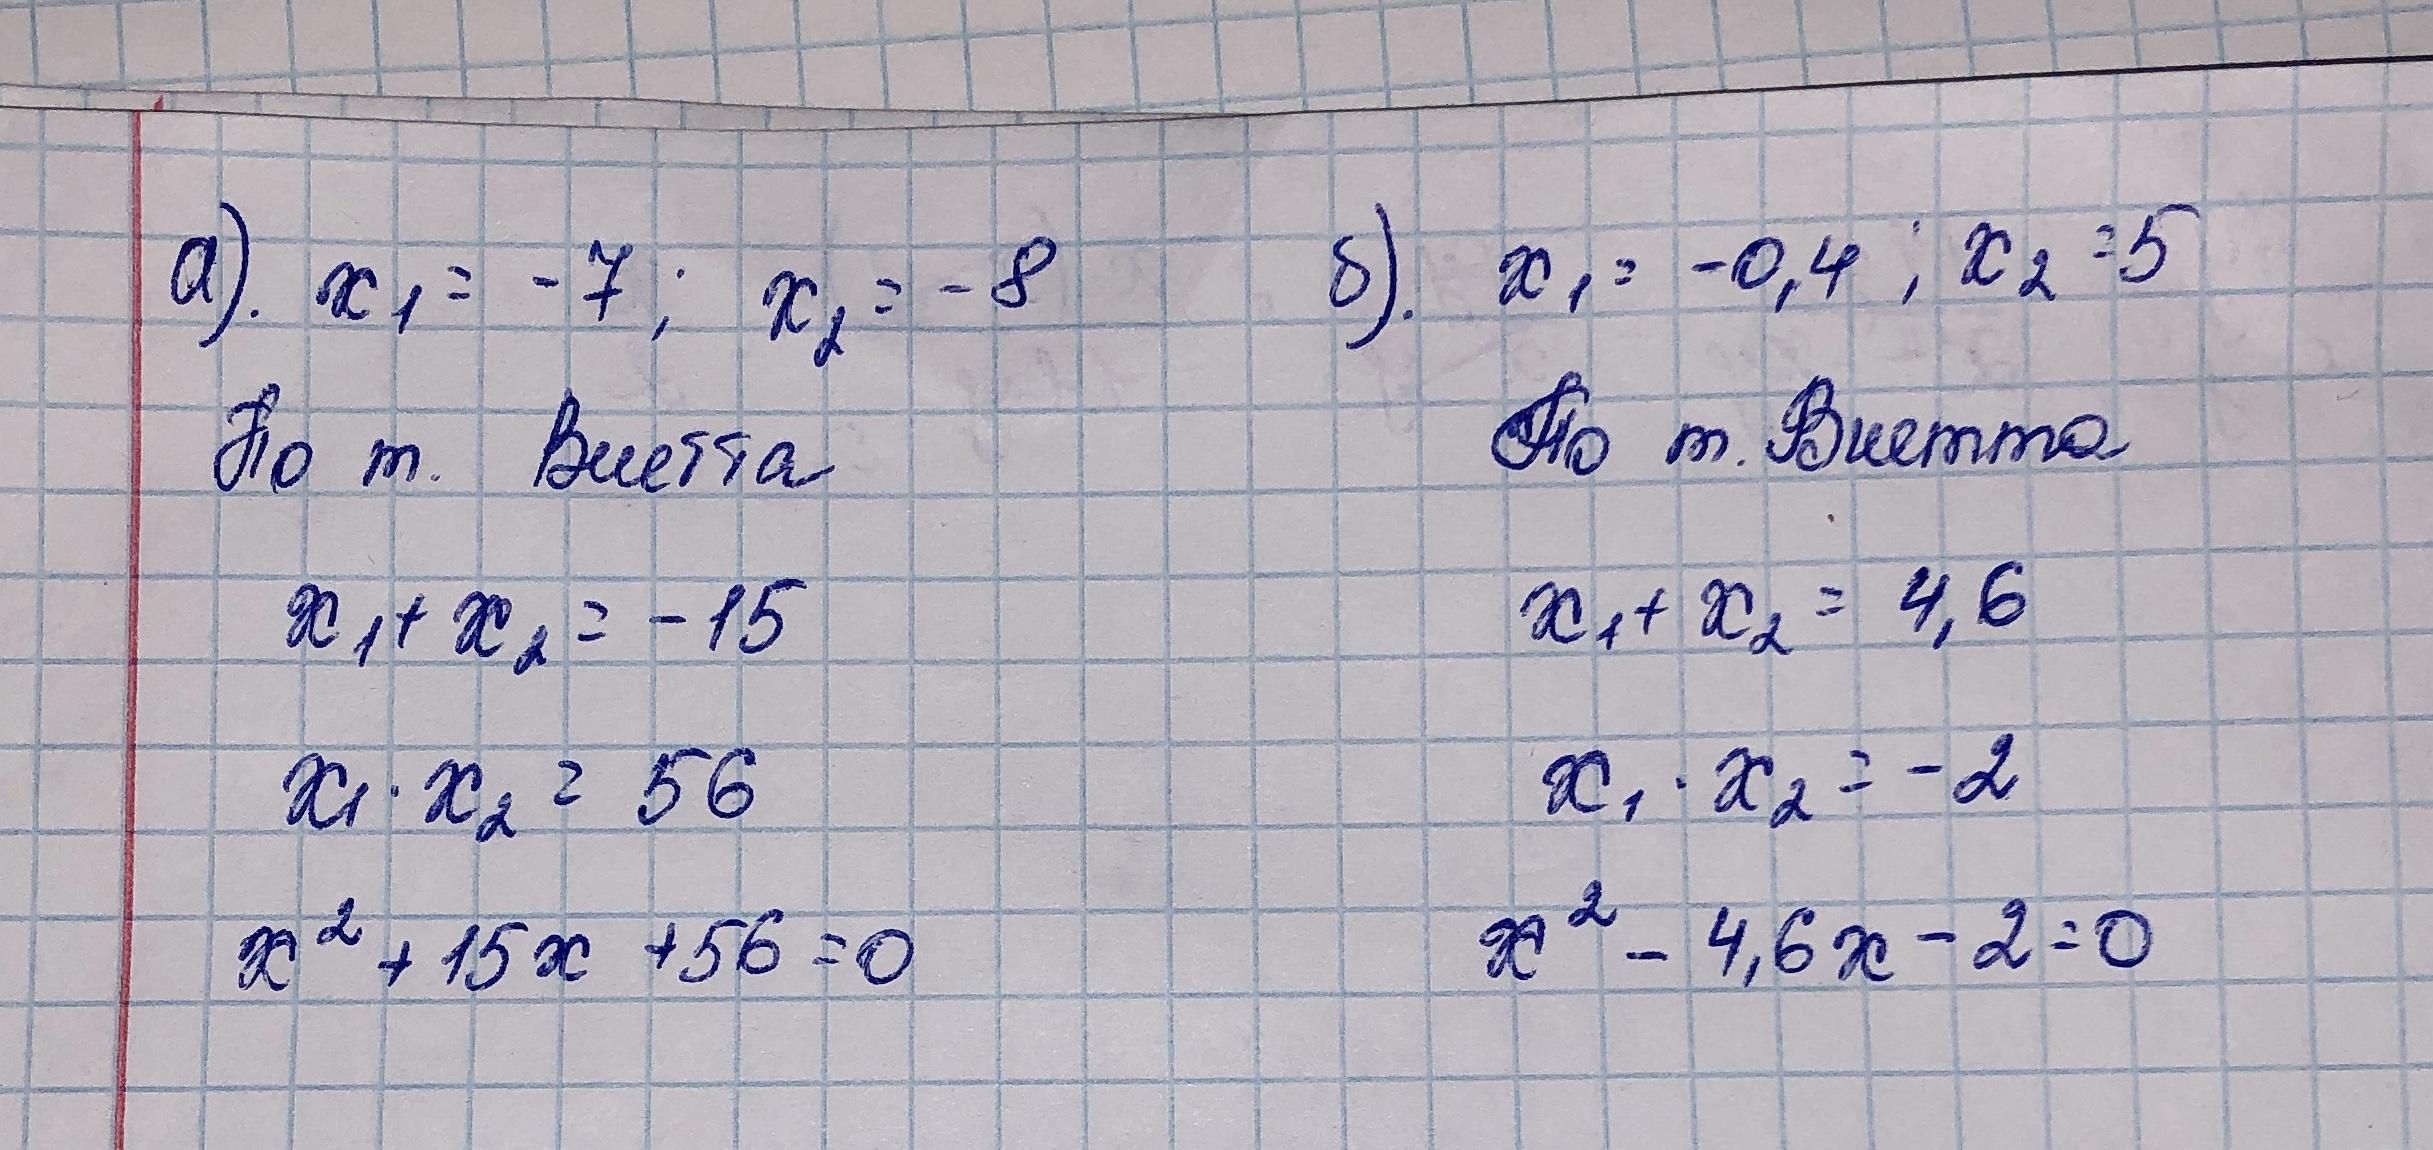 а). x₁ = -7; x₂ = -8
По т. Виетта
x₁ + x₂ = -15
x₁ · x₂ = 56
x² + 15x + 56 = 0
б). x₁ = -0,4; x₂ = 5
По т. Виетта
x₁ + x₂ = 4,6
x₁ · x₂ = -2
x² - 4,6x - 2 = 0